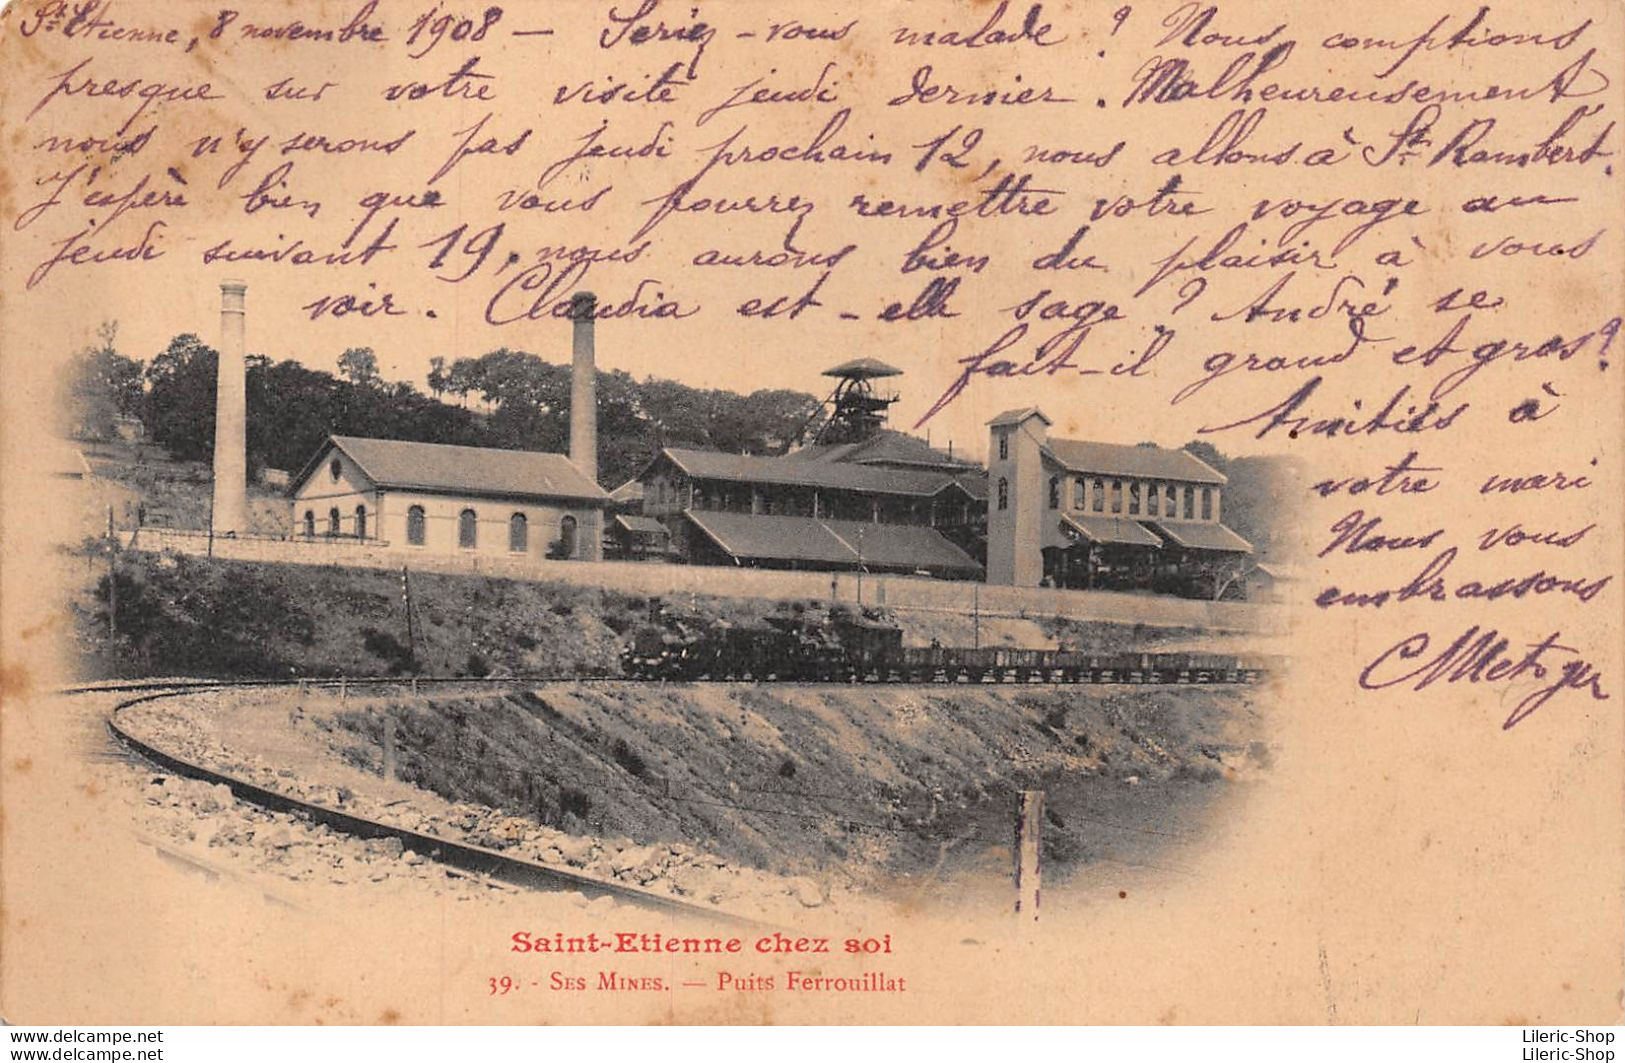 St Etienne, 8 novembre 1908 — Seriez-vous malade ? Nous comptions
presque sur votre visite jeudi dernier. Malheureusement
nous n'y serons pas jeudi prochain 12, nous allons à St Rambert.
J'espère bien que vous pourrez remettre votre voyage au
jeudi suivant 19, nous aurons bien du plaisir à vous
voir. Claudia est-elle sage ? André se
fait-il grand et gros ?
Amitiés à
votre mari
Nous vous
embrassons
C Metzger
Saint-Etienne chez soi
39. - Ses Mines. — Puits Ferrouillat
www.delcampe.net
Lileric-Shop
www.delcampe.net
Lileric-Shop